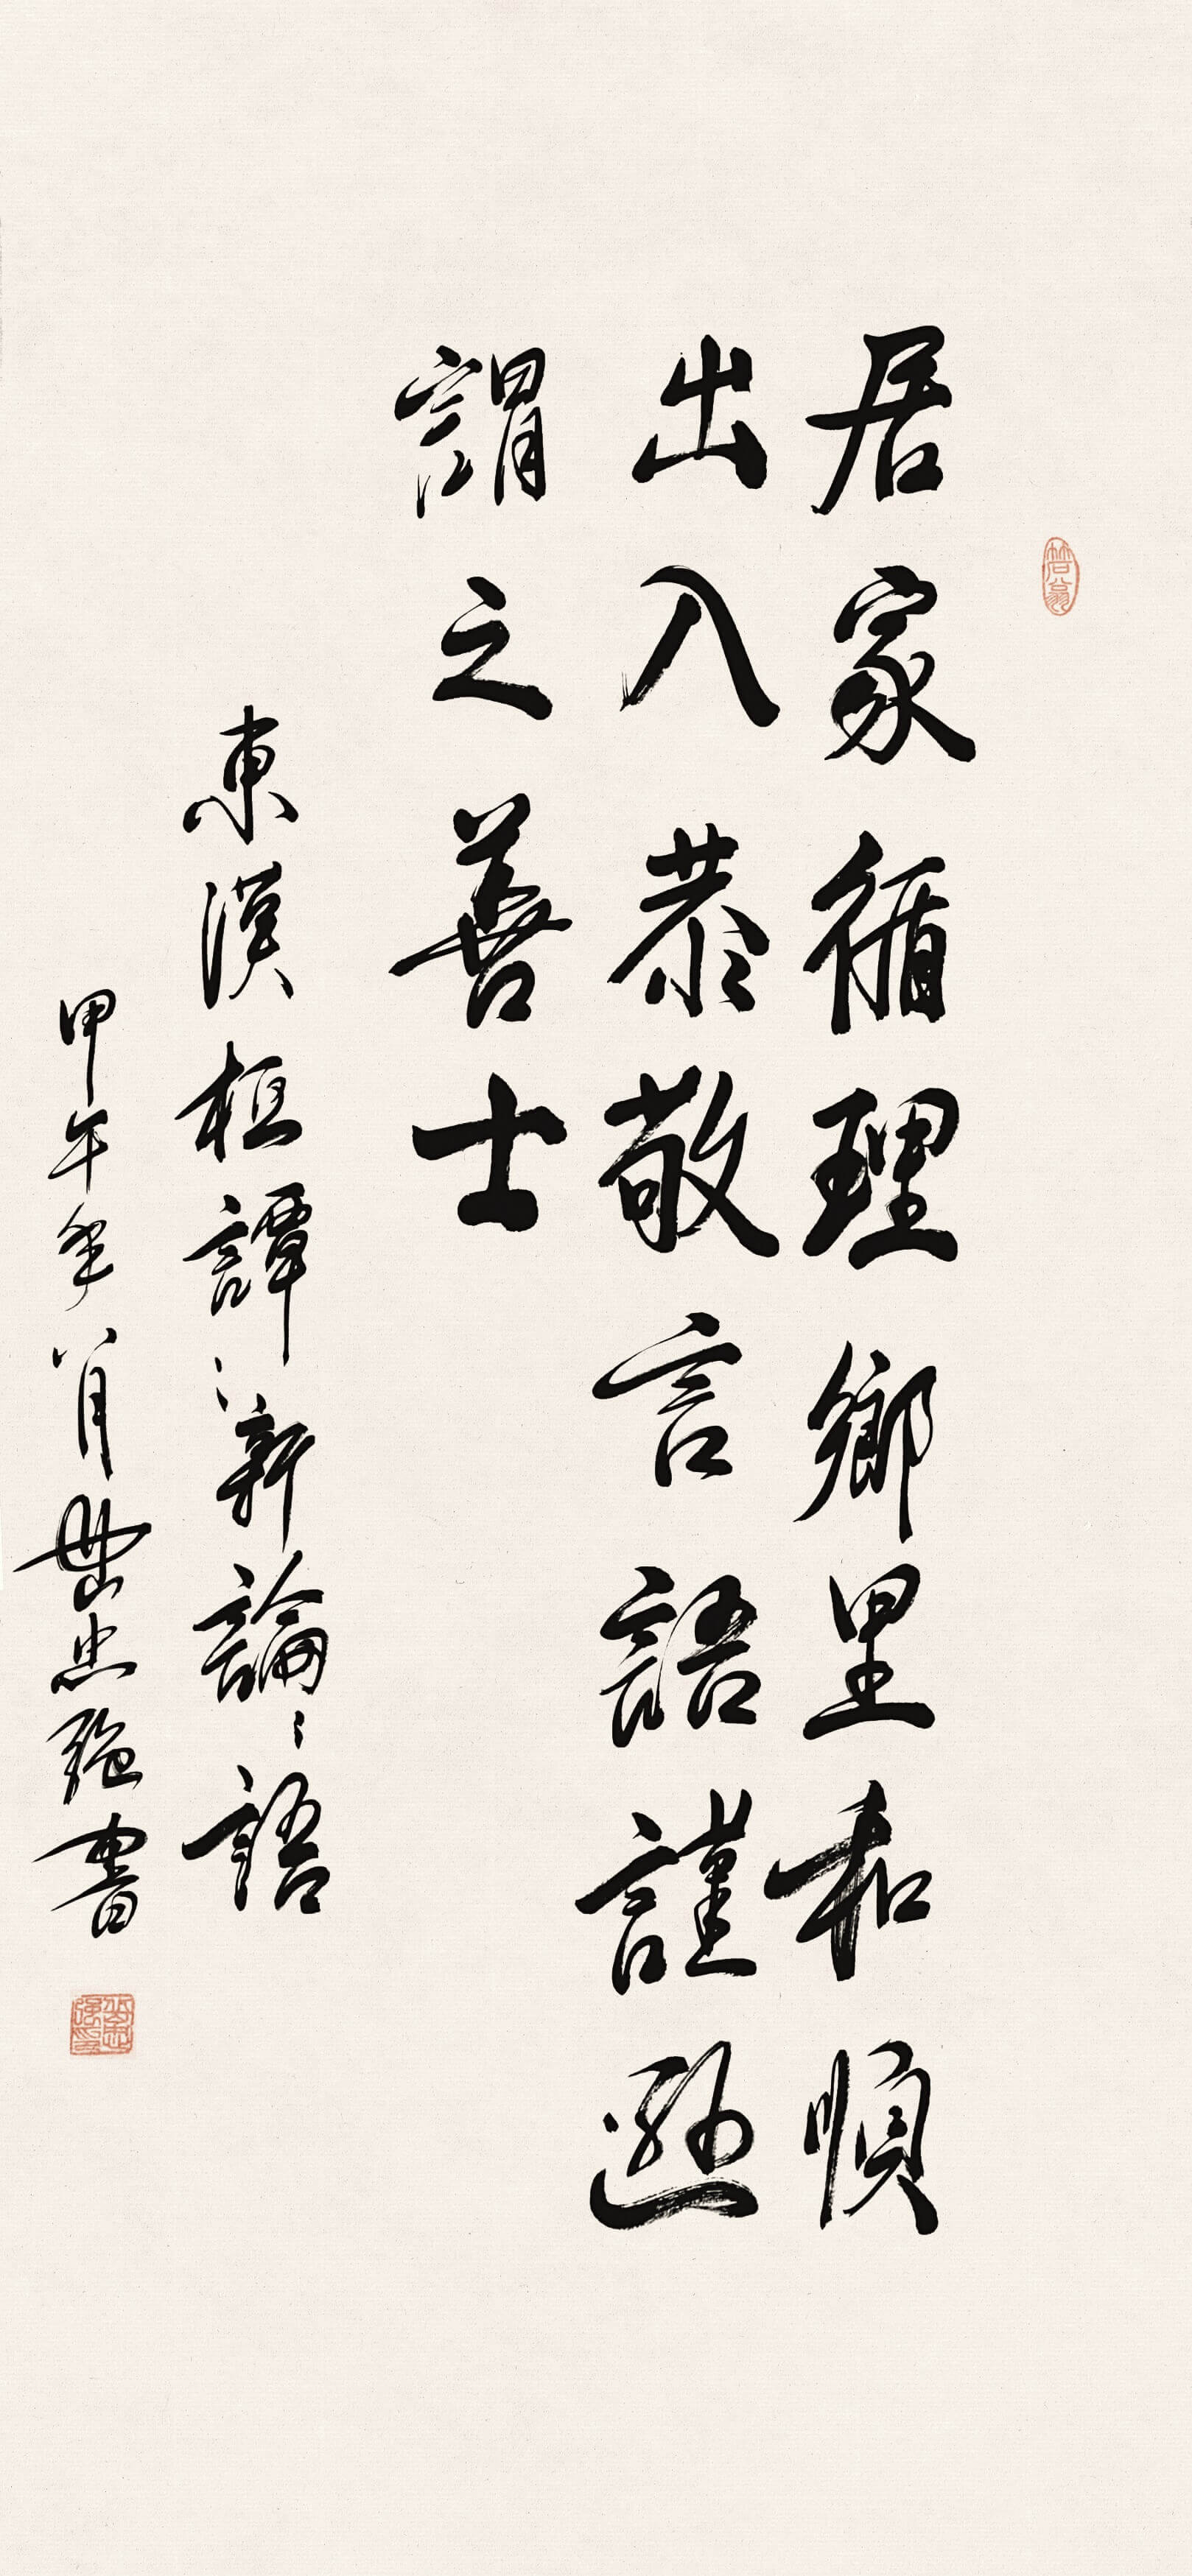 居家循理鄉里和順
出入恭敬言語謹遜
謂之善士
東漢桓譚新論語
甲午年八月忠強書